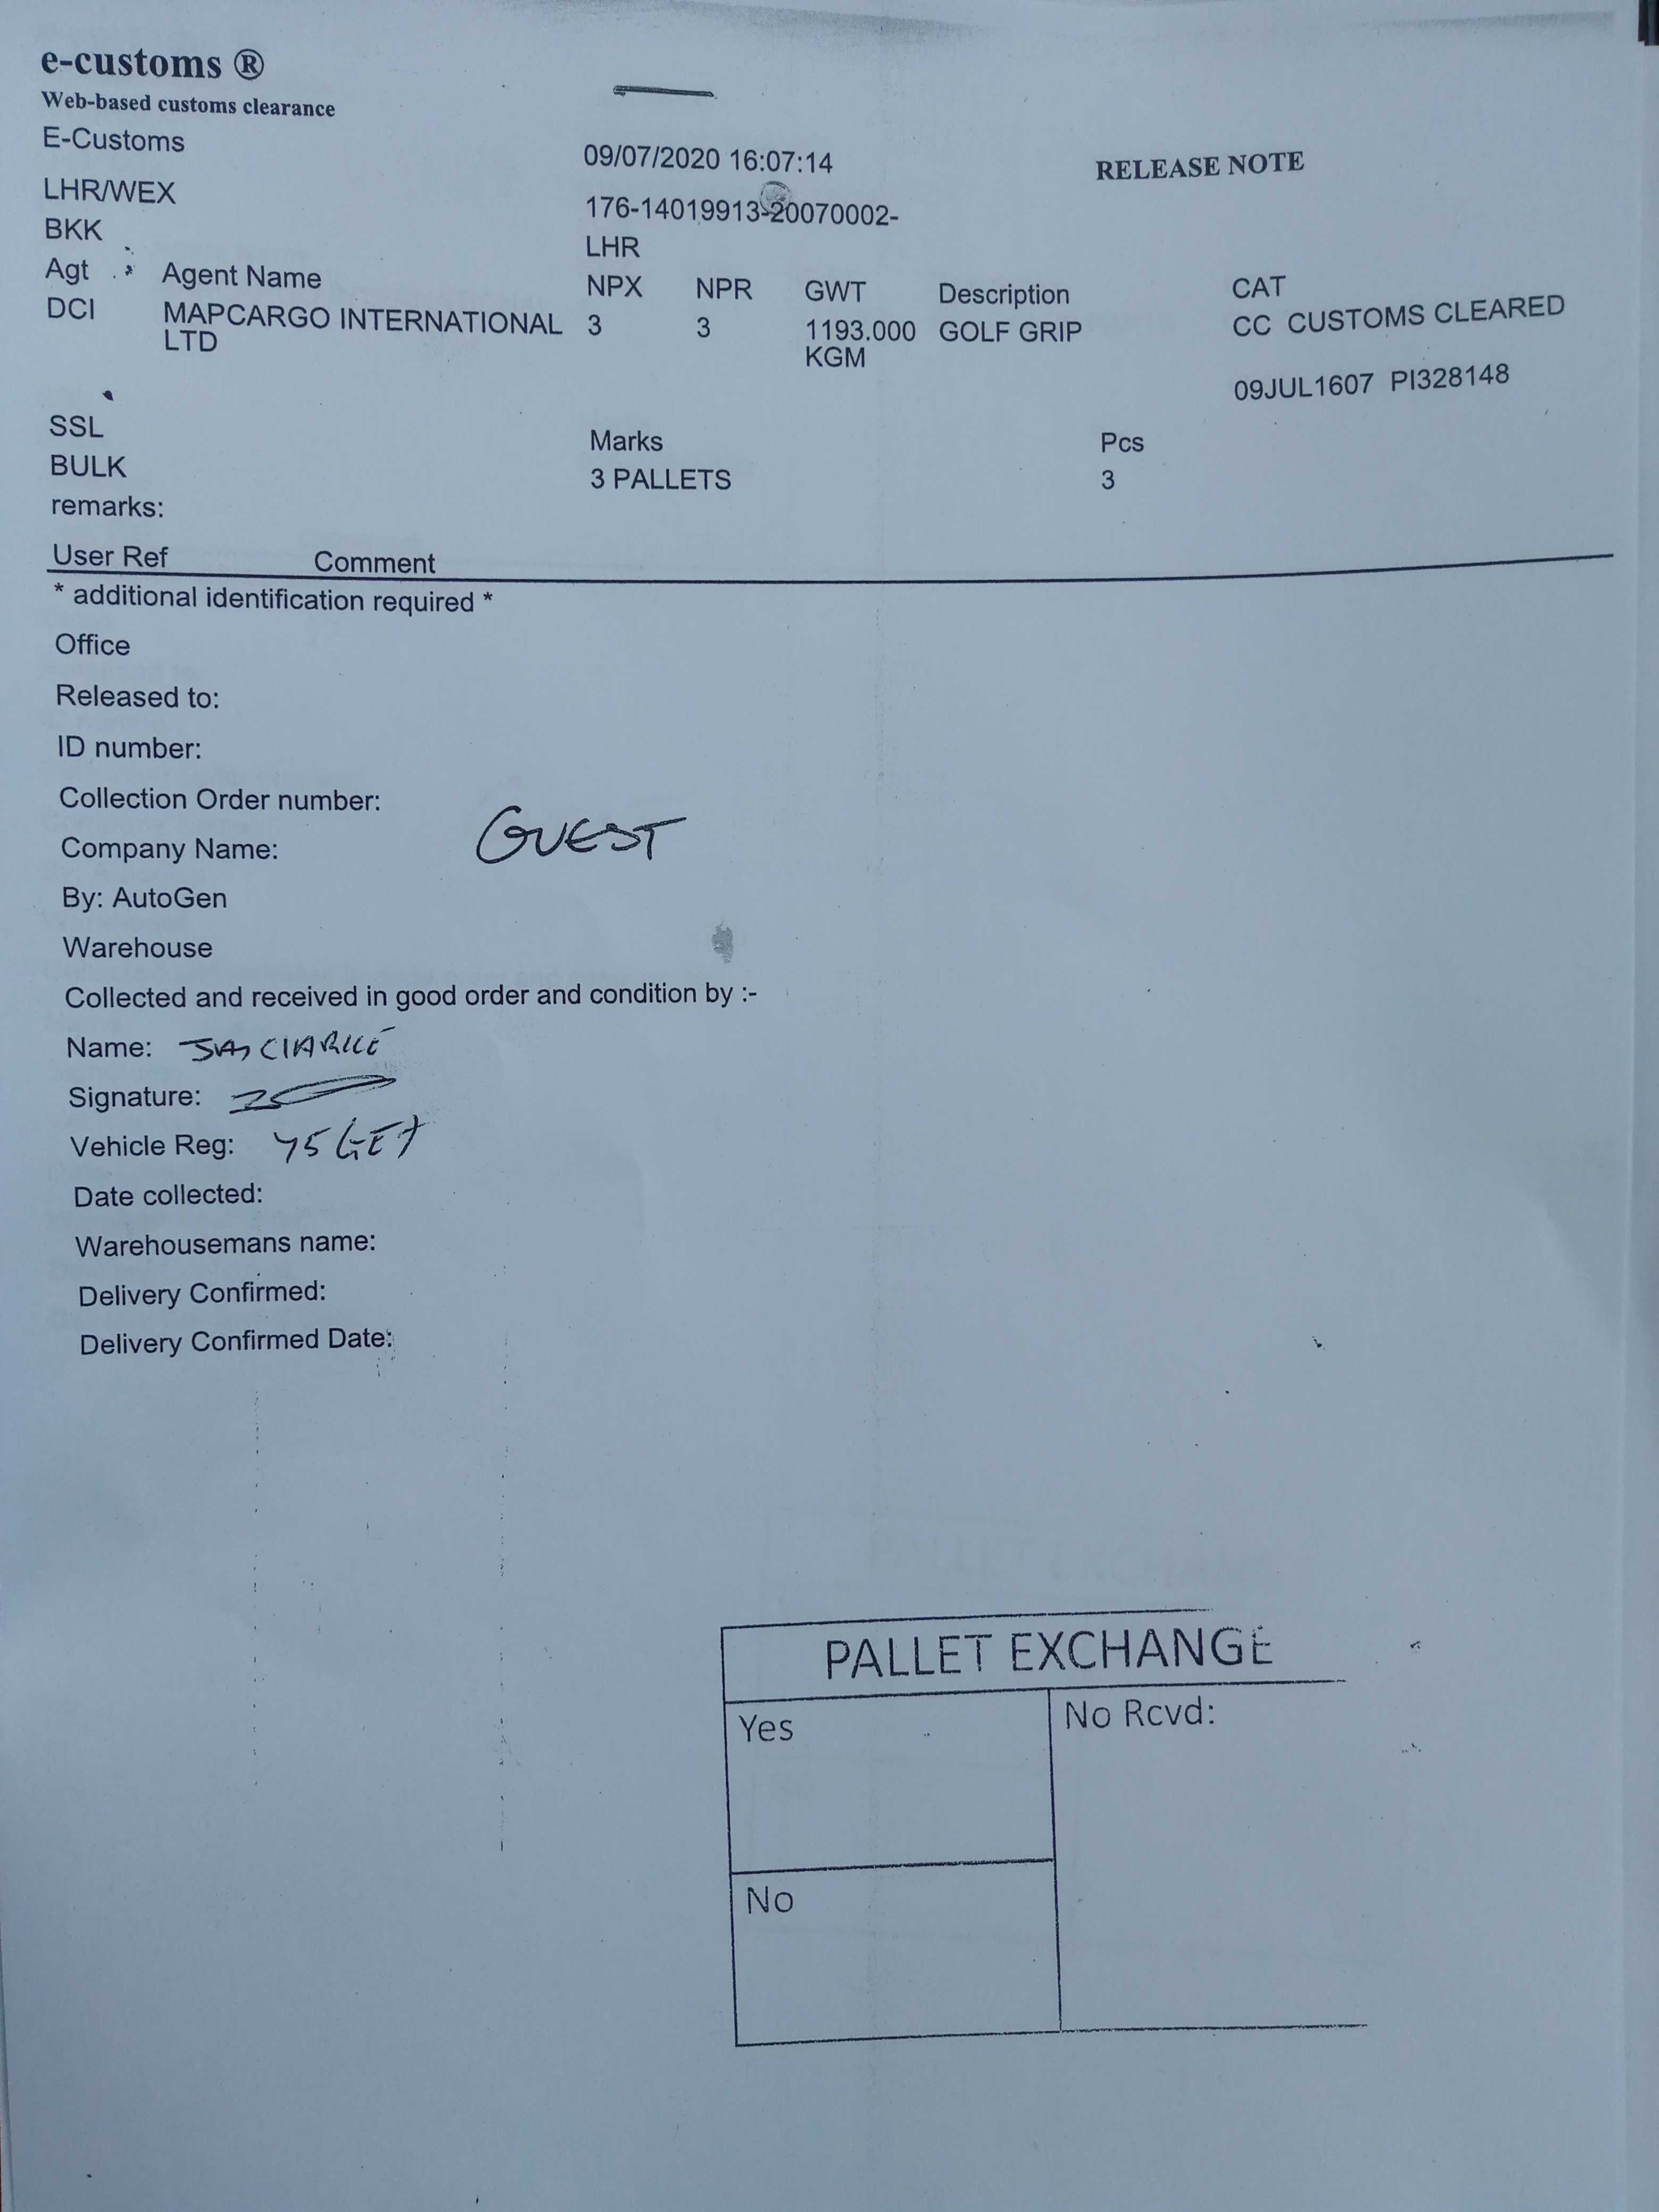 e-customs ®
Web-based customs clearance
E-Customs
09/07/2020 16:07:14
RELEASE NOTE
LHR/WEX
176-14019913-20070002-
BKK
LHR
Agt Agent Name NPX NPR GWT Description CAT
DCI MAPCARGO INTERNATIONAL 3 3 1193.000 GOLF GRIP CC CUSTOMS CLEARED
LTD KGM
09JUL1607 PI328148
SSL Marks Pcs
BULK 3 PALLETS 3
remarks:
User Ref Comment
* additional identification required *
Office
Released to:
ID number:
Collection Order number:
Company Name: GUEST
By: AutoGen
Warehouse
Collected and received in good order and condition by :-
Name: CLARKE
Signature:
Vehicle Reg:
Date collected:
Warehousemans name:
Delivery Confirmed:
Delivery Confirmed Date:
PALLET EXCHANGE
Yes
No Rcvd:
No